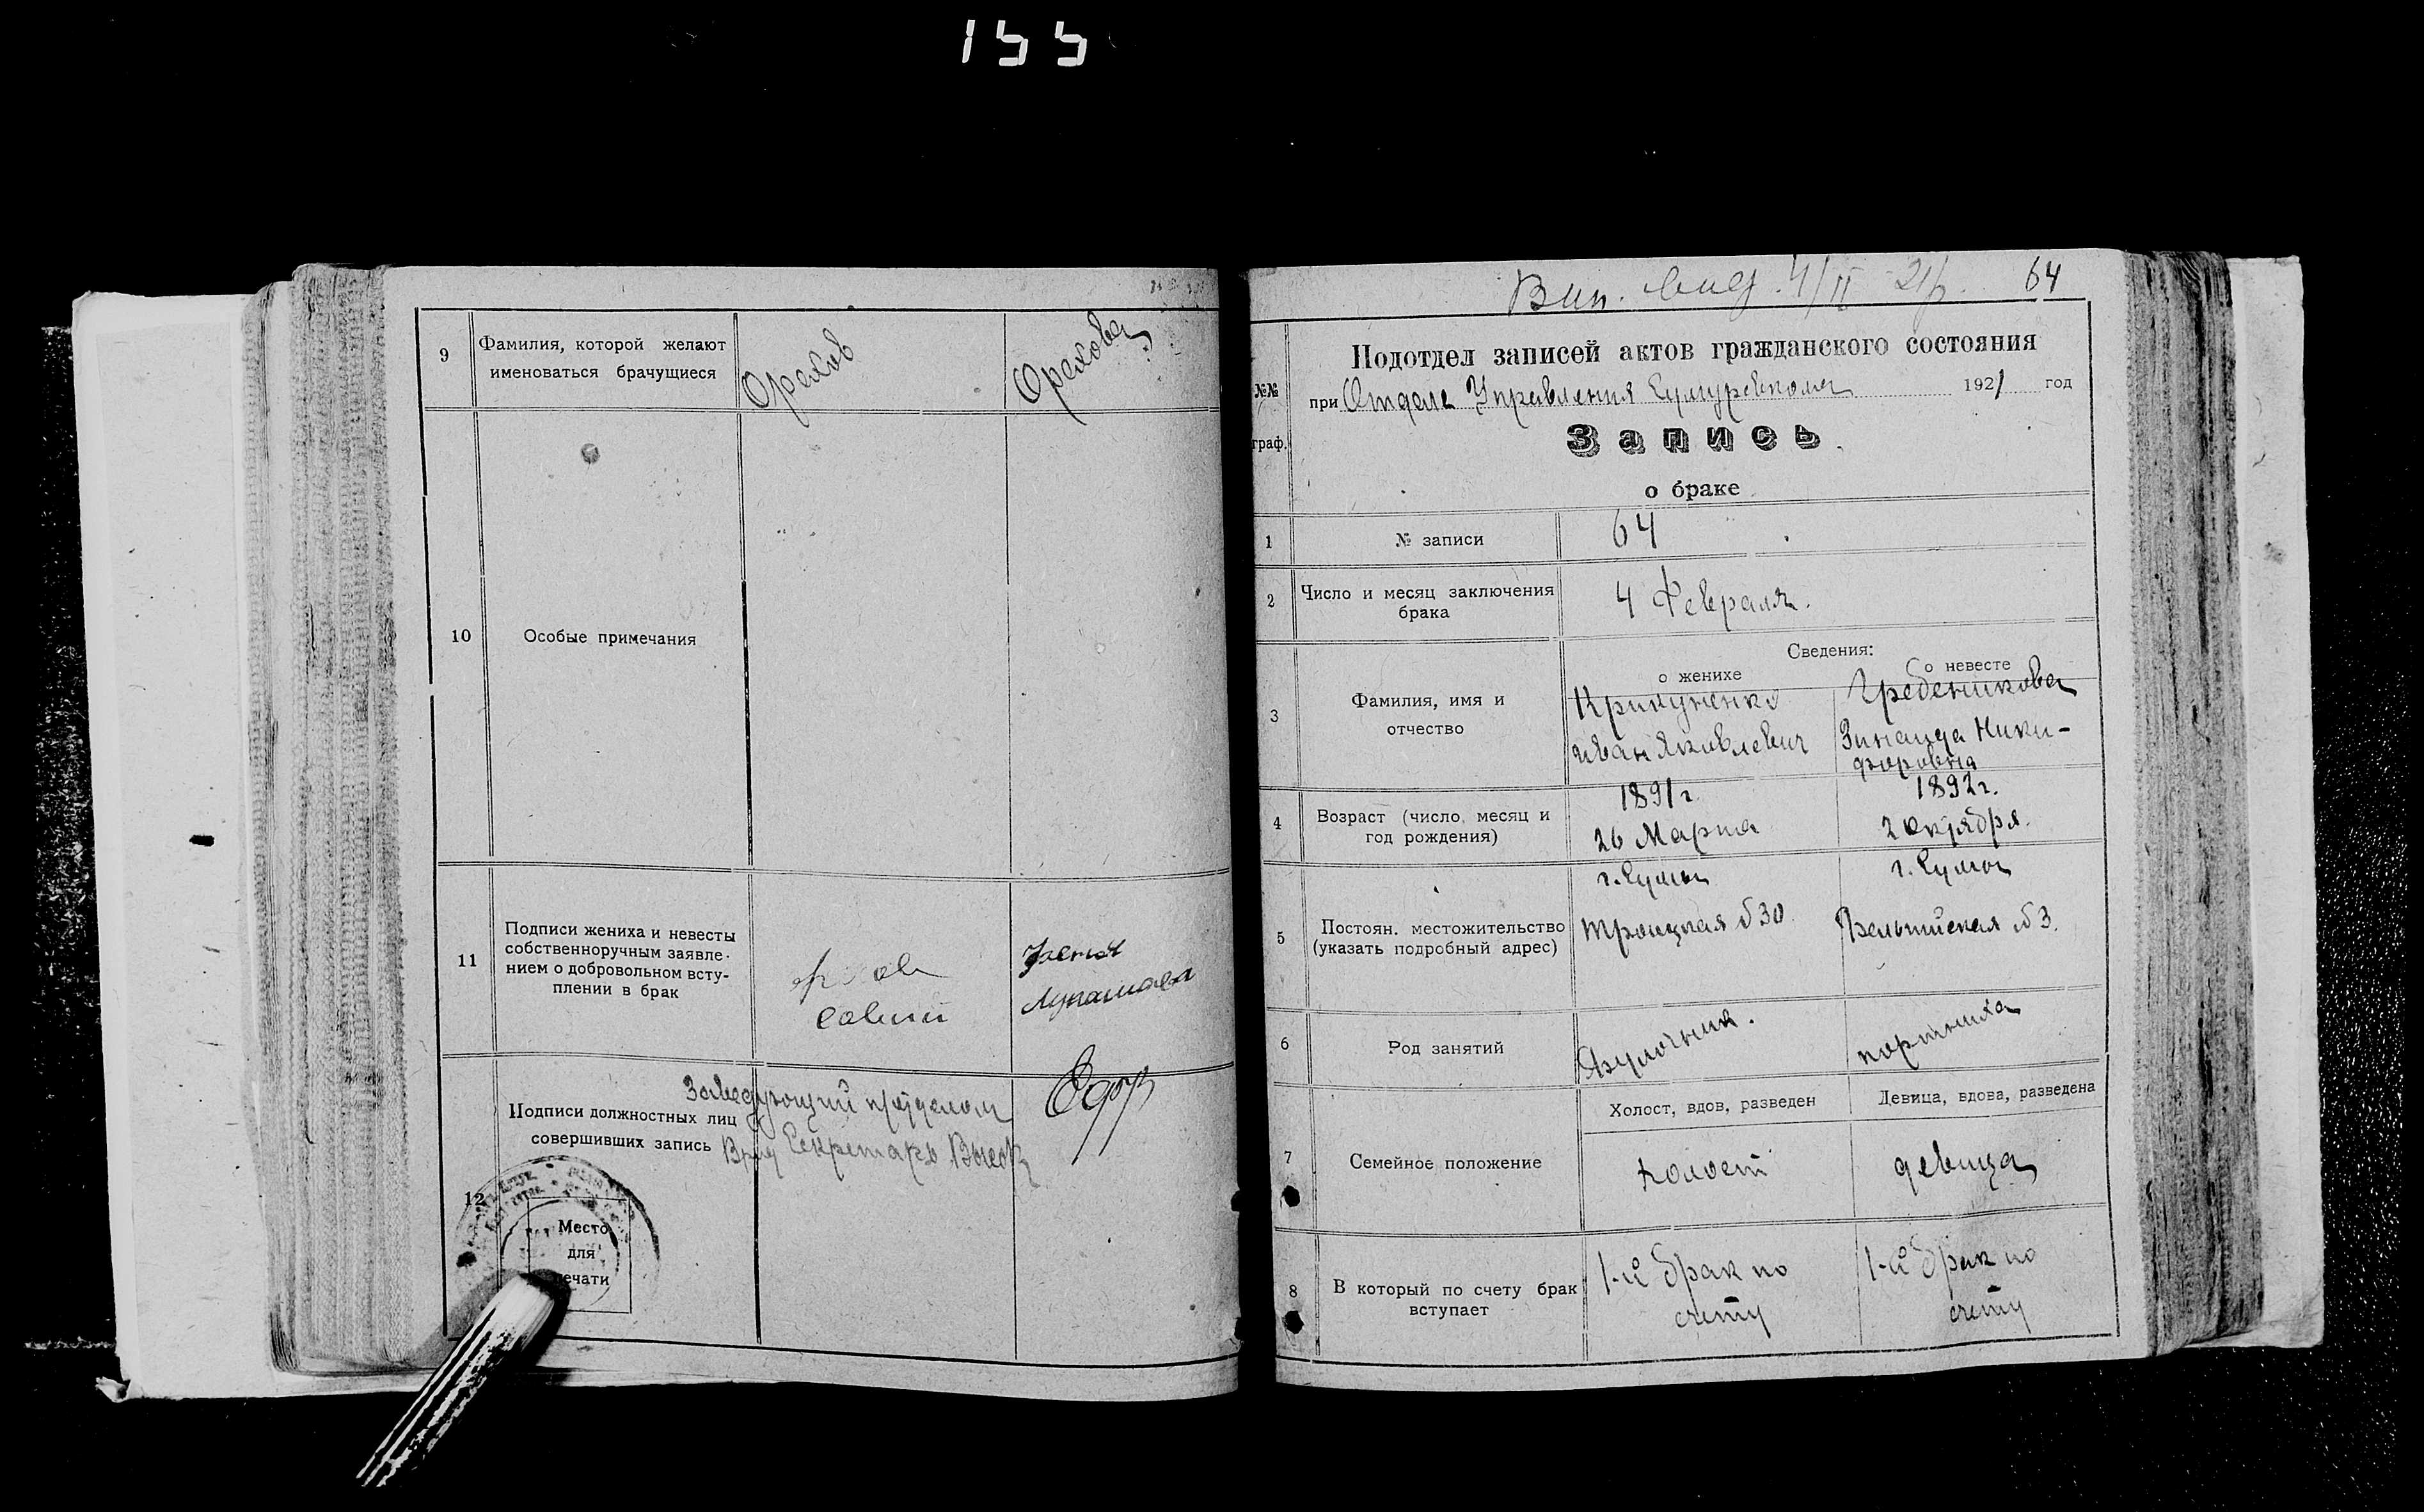 155
9
Фамилия, которой желают
именоваться брачущиеся
Орехов
Орехова
10
Особые примечания
11
Подписи жениха и невесты
собственноручным заявле-
нием о добровольном всту-
плении в брак
Заведующий п/отделом
Подписи должностных лиц
совершивших запись
Врид Секретарь
12
Место
для
печати
Вып. 4/II 21 г.
64
Подотдел записей актов гражданского состояния
№№
граф.
при Отделе Управления Сумуревкома 1921 год
Запись
о браке
1
№ записи
64
2
Число и месяц заключения
брака
4 Февраля.
Сведения:
о женихе
о невесте
3
Фамилия, имя и
отчество
Крикуненко
Иван Яковлевич
Гребеникова
Зинаида Ники-
форовна
4
Возраст (число, месяц и
год рождения)
1891 г.
26 Марта
1892 г.
2 Октября.
5
Постоян. местожительство
(указать подробный адрес)
г. Сумы
Троицкая № 30
г. Сумы
№ 3.
6
Род занятий
Булочник.
портниха
7
Семейное положение
Холост, вдов, разведен
Девица, вдова, разведена
холост
девица
8
В который по счету брак
вступает
1-й брак по
счету
1-й брак по
счету